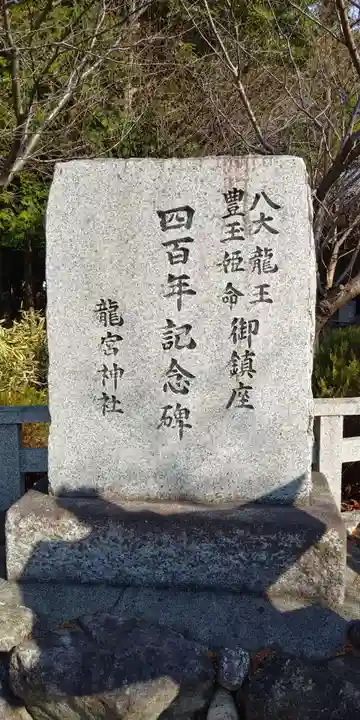 八大龍王
豊玉姫命
御鎮座
四百年記念碑
龍宮神社